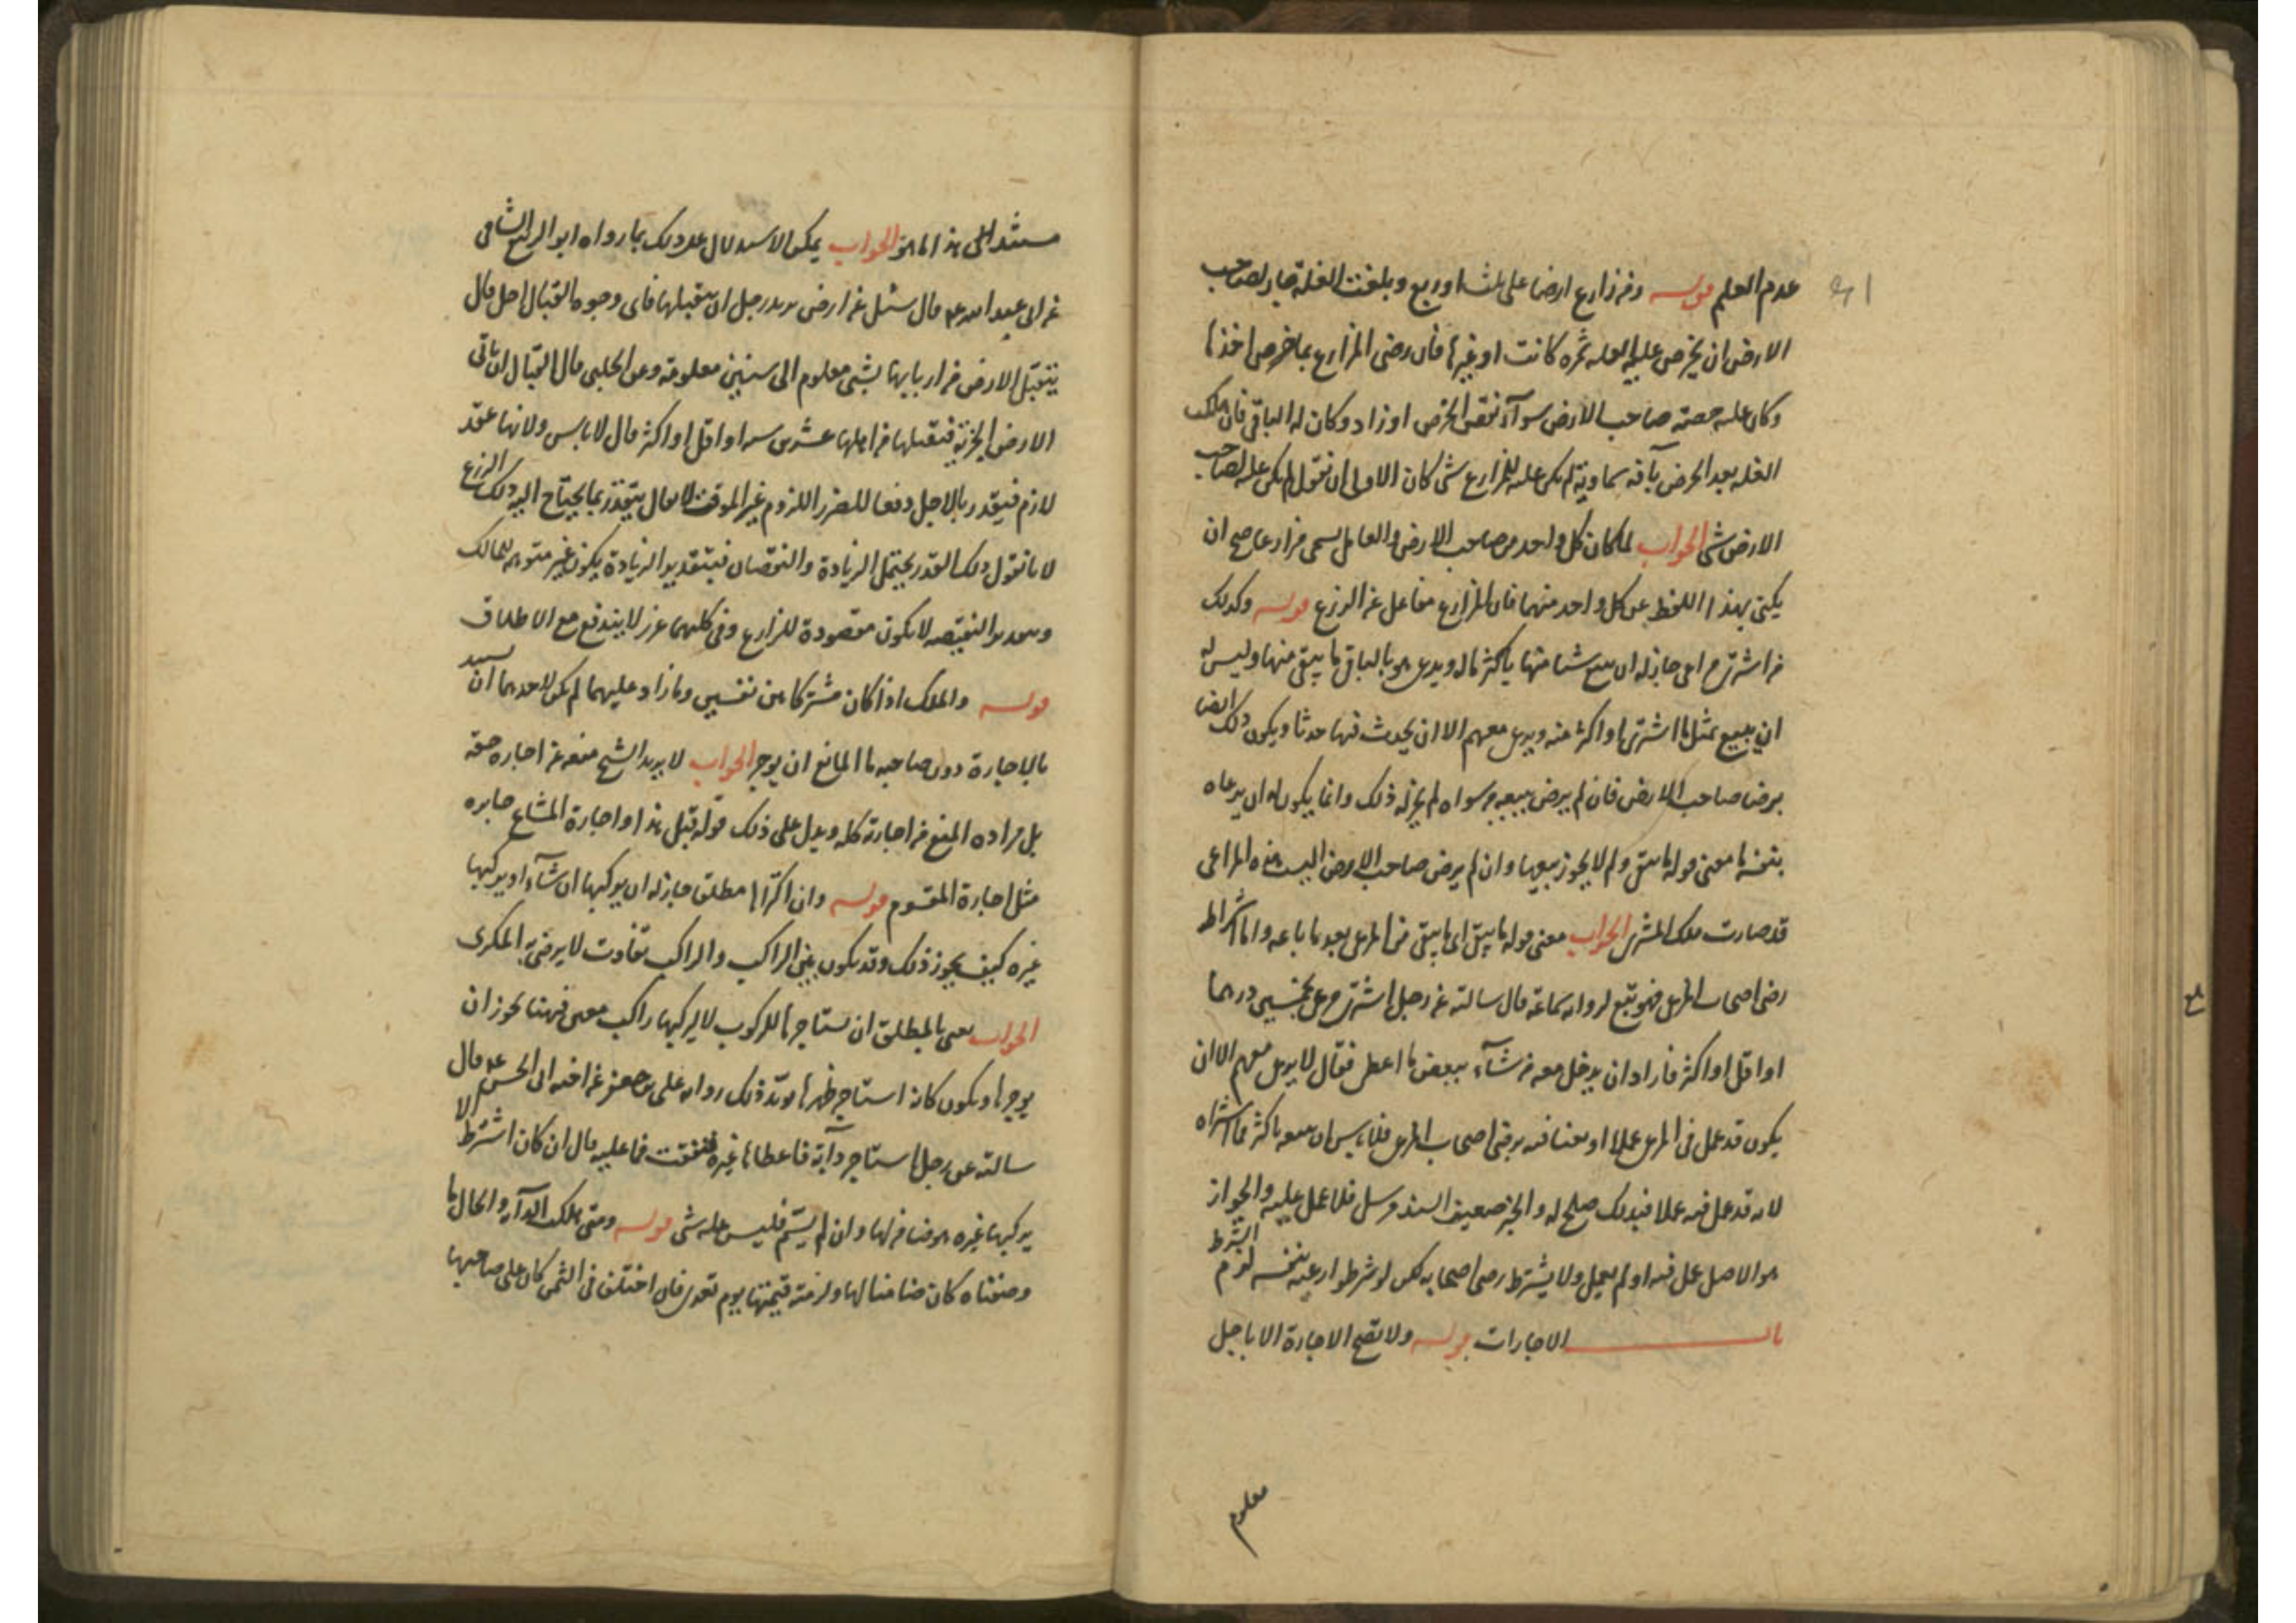 عدم العلم قوله ومن زارع ارضا على ثلث او ربع وبلغت الغلة جاز لصاحب
الارض ان يخرص عليه الغله ثمره كانت او غيرها فان رضى المزارع بما خرص اخذها
وكان عليه حصته صاحب الارض سوآء نقص الخرص او زاد وكان له الباقى فان هلكت
الغله بعد الخرص بآفه سماوية لم يكن عليه للمزارع شى كان الاولى ان نقول لم يكن عليه لصاحب
الارض شى الجواب لما كان كل واحد من صاحب الارض والعامل يسمى مزارعا صح ان
يكنى بهذا اللفظ عن كل واحد منهما فان المزارع مفاعل من الزرع قوله وكذلك
من اشترى مراعى جاز له ان يبيع شيئا منها باكثر ماله ويرعى هو بالباقى ما يبقى منها وليس له
ان يبيع بمثل ما اشترى او اكثر منه ويرعى معهم الا ان يحدث فيها حدثا ويكون ذلك ايضا
برضا صاحب الارض فان لم يرض ببيعه من سواه لم يجز له ذلك وانما يكون له ان يرعاه
بنفسه ما معنى قوله ما يبقى ولم لا يجوز بيعها وان لم يرض صاحب الارض اليست هذه المراعى
قد صارت ملك المشترى الجواب معنى قوله ما يبقى اى ما يبقى من المرعى بعد ما باعه واما اشتراط
رضى اصحاب المرعى فهو تبع لرواية سماعة قال سالته عن رجل اشترى مرعى بخمسين درهما
او اقل او اكثر فاراد ان يدخل معه من شآء ببعض ما اعطى فقال لا يرعى معهم الا ان
يكون قد عمل فى المرعى عملا او معنا فيه برضى اصحاب المرعى فلا باس ان يبيعه باكثر مما اشتراه
لانه قد عمل فيه عملا فبذلك صلح له والخبر ضعيف السند مرسل فلا عمل عليه والجواز
هو الاصل عمل فيه او لم يعمل ولا يشترط رضى اصحابه لكن لو شرطوا رعيه بنفسه لزم الشرط
باب الاجارات قوله ولا تصح الاجارة الا باجل
معلوم
مستند الى هذا ما هو الجواب يمكن الاستدلال على ذلك بما رواه ابو الربيع الشامى
عن ابى عبد الله عم قال سئل عن ارض يريد رجل ان يتقبلها فاى وجوه القبال احل قال
يتقبل الارض من اربابها بشى معلوم الى سنين معلومة وعن الحلبى قال القبال ان ياتى
الارض الخربة فيتقبلها من اهلها عشرين سنه او اقل او اكثر قال لا باس ولانها عقد
لازم فيتقدر بالاجل دفعا للضرر اللزوم غير الموقت لا يقال يتقدر بما يحتاج اليه ذلك الزرع
لانا نقول ذلك القدر يحتمل الزيادة والنقصان فبتقدير الزيادة يكون غير متوهم للمالك
وبتقدير النقيصه لا يكون مقصودة للزارع وفى كليهما غرر لا يندفع مع الاطلاق
قوله والملك اذا كان مشتركا بين نفسين وما زاد عليهما لم يكن لاحدهما ان يستبد
بالاجارة دون صاحبه ما المانع ان يوجر الجواب لا يريد الشيخ منعه من اجاره حقه
بل مراده المنع من اجارة كله ويدل على ذلك قوله قبل هذا واجارة المشاع جايزه
مثل اجارة المقسوم قوله وان اكتراها مطلق جاز له ان يركبها ان شآء او يركبها
غيره كيف يجوز ذلك وقد يكون بين الراكب والراكب تفاوت لا يرضى به المكرى
الجواب يعنى بالمطلق ان يستاجرها للركوب لا ليركبها راكب معين فهنا يجوز ان
يوجرها ويكون كانه استاجر ظهرها يويد ذلك رواية على بن جعفر عن اخيه ابى الحسن عم قال
سالته عن رجل استاجر دآبة فاعطاها غيره فنفقت فما عليه قال ان كان اشترط الا
يركبها غيره فهو ضامن لها وان لم يسم فليس عليه شى قوله ومتى هلكت الدآبه والحال ما
وصفناه كان ضامنا لها ولزمته قيمتها يوم تعدى فان اختلفا فى الثمن كان على صاحبها